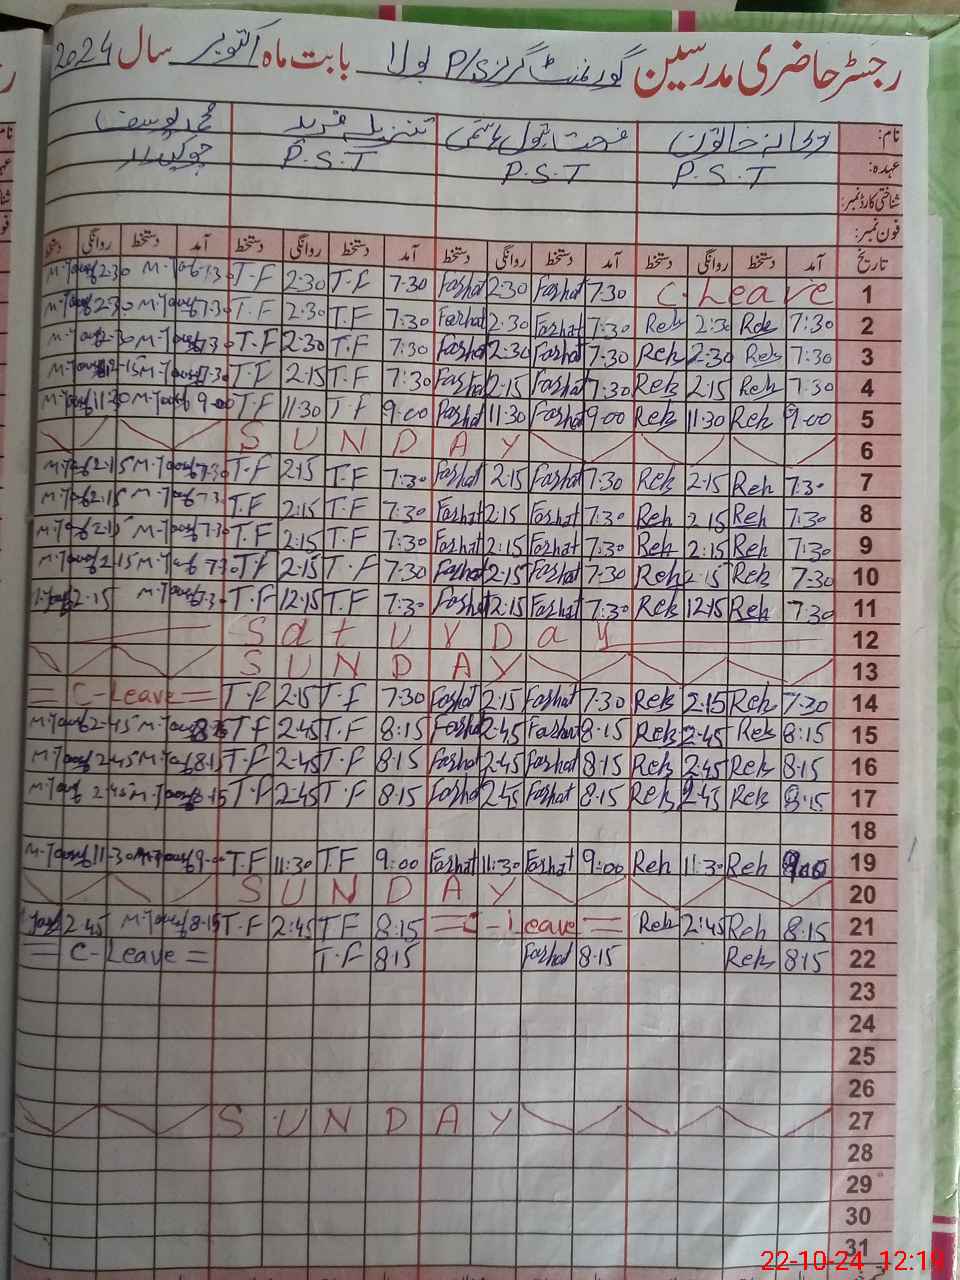 رجسٹر حاضری مدرسین گورنمنٹ گرلز P/S لولا بابت ماہ اکتوبر سال 2024
نام: ریحانہ خاتون فرحت بتول ہاشمی تنزیلہ فرید محمد یوسف
عہدہ: P.S.T P.S.T P.S.T چوکیدار
شناختی کارڈ نمبر:
فون نمبر:
تاریخ آمد دستخط روانگی دستخط آمد دستخط روانگی دستخط آمد دستخط روانگی دستخط آمد دستخط روانگی دستخط
2:30 T.F 2:30 T.F 7:30 Farhat 2:30 Farhat 7:30 C-Leave 1
2:30 7:30 T.F 2:30 T.F 7:30 Farhat 2:30 Farhat 7:30 Reh 2:30 Reh 7:30 2
2:30 7:30 T.F 2:30 T.F 7:30 Farhat 2:30 Farhat 7:30 Reh 2:30 Reh 7:30 3
2:15 7:30 T.F 2:15 T.F 7:30 Farhat 2:15 Farhat 7:30 Reh 2:15 Reh 7:30 4
11:30 9:00 T.F 11:30 T.F 9:00 Farhat 11:30 Farhat 9:00 Reh 11:30 Reh 9:00 5
SUNDAY 6
2:15 7:30 T.F 2:15 T.F 7:30 Farhat 2:15 Farhat 7:30 Reh 2:15 Reh 7:30 7
2:15 7:3 T.F 2:15 T.F 7:30 Farhat 2:15 Farhat 7:30 Reh 2:15 Reh 7:30 8
2:15 7:30 T.F 2:15 T.F 7:30 Farhat 2:15 Farhat 7:30 Reh 2:15 Reh 7:30 9
2:15 7:30 T.F 2:15 T.F 7:30 Farhat 2:15 Farhat 7:30 Reh 2:15 Reh 7:30 10
2:15 7:3 T.F 12:15 T.F 7:30 Farhat 12:15 Farhat 7:30 Reh 12:15 Reh 7:30 11
SatUrDay 12
SUNDAY 13
= C-Leave = T.F 2:15 T.F 7:30 Farhat 2:15 Farhat 7:30 Reh 2:15 Reh 7:30 14
2:45 8:15 T.F 2:45 T.F 8:15 Farhat 2:45 Farhat 8:15 Reh 2:45 Reh 8:15 15
2:45 8:15 T.F 2:45 T.F 8:15 Farhat 2:45 Farhat 8:15 Reh 2:45 Reh 8:15 16
2:45 8:15 T.F 2:45 T.F 8:15 Farhat 2:45 Farhat 8:15 Reh 2:45 Reh 8:15 17
18
11:30 9:00 T.F 11:30 T.F 9:00 Farhat 11:30 Farhat 9:00 Reh 11:30 Reh 9:00 19
SUNDAY 20
2:45 8:15 T.F 2:45 T.F 8:15 = C-Leave = Reh 2:45 Reh 8:15 21
= C-Leave = T.F 8:15 Farhat 8:15 Reh 8:15 22
23
24
25
26
SUNDAY 27
28
29
30
31
22-10-24 12:19